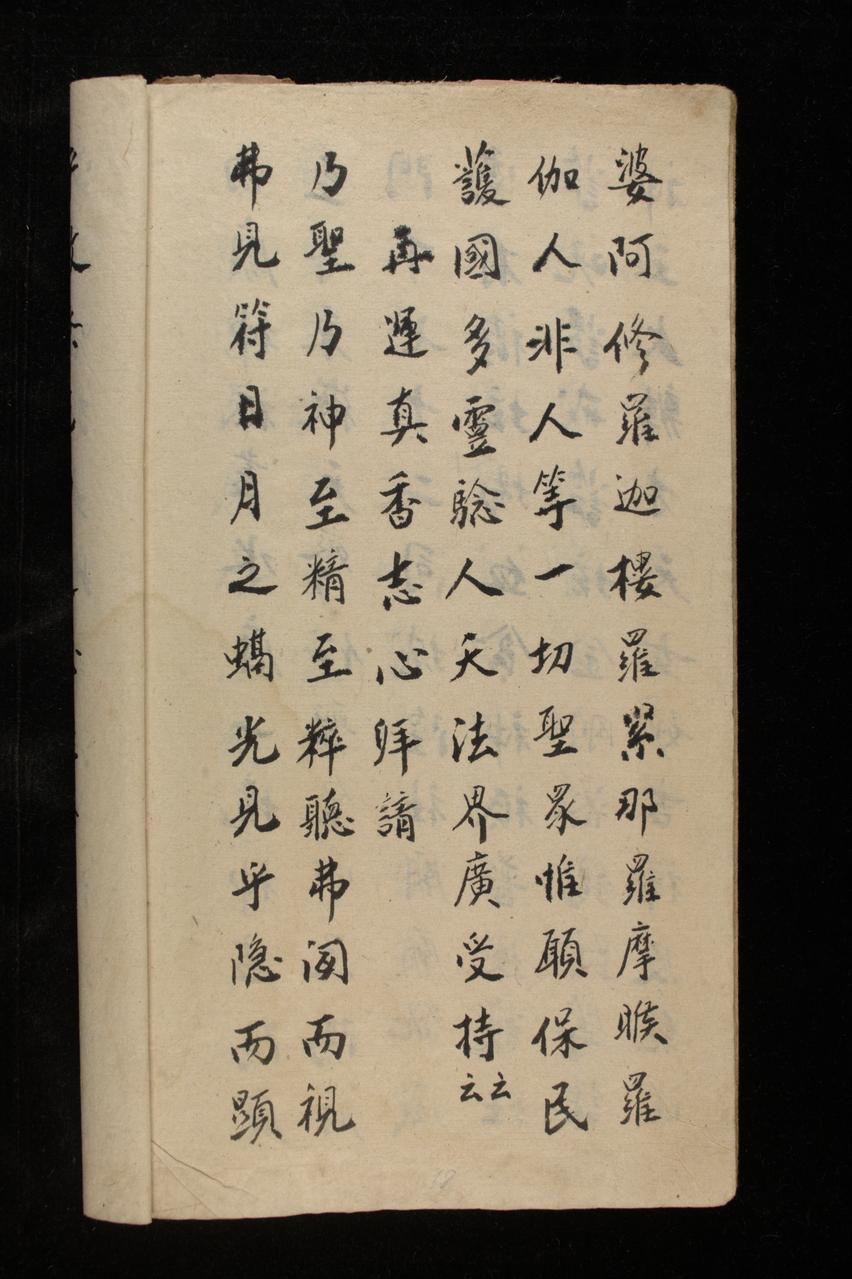 婆阿修羅迦樓羅緊那羅摩睺羅
伽人非人等一切聖眾惟願保民
護國多靈驗人天法界廣受持云云
再運真香志心拜請
乃聖乃神至精至粹聽弗聞而視
弗見符日月之蠵光見乎隐而顕